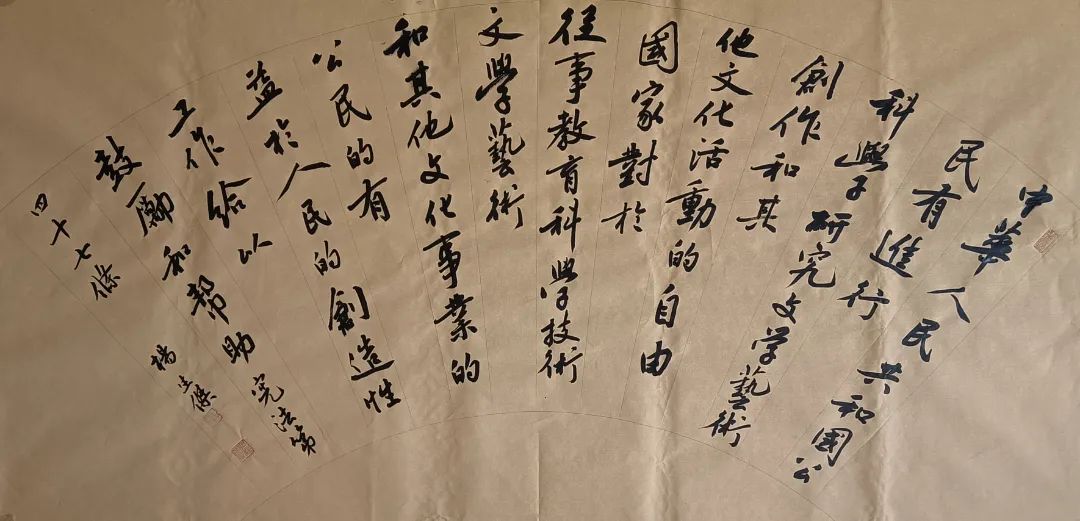 中華人民共和國公
民有進行
科學研究文学藝術
創作和其
他文化活動的自由
國家對於
從事教育科學技術
文學藝術
和其他文化事業的
公民的有
益於人民的創造性
工作給以
鼓勵和幫助宪法第
四十七條
楊傑